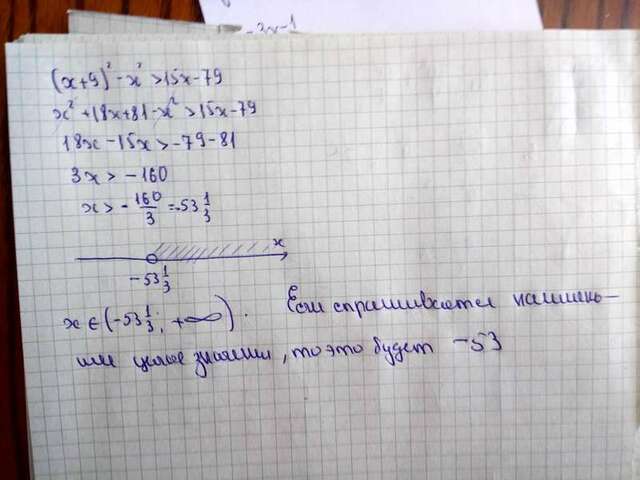 (x+9)² - x² > 15x - 79
x² + 18x + 81 - x² > 15x - 79
18x - 15x > -79 - 81
3x > -160
x > -160/3 = -53 1/3
-53 1/3 x
x ∈ (-53 1/3; +∞). Если спрашивается наимень-
шее целое значение, то это будет -53
-2y-1